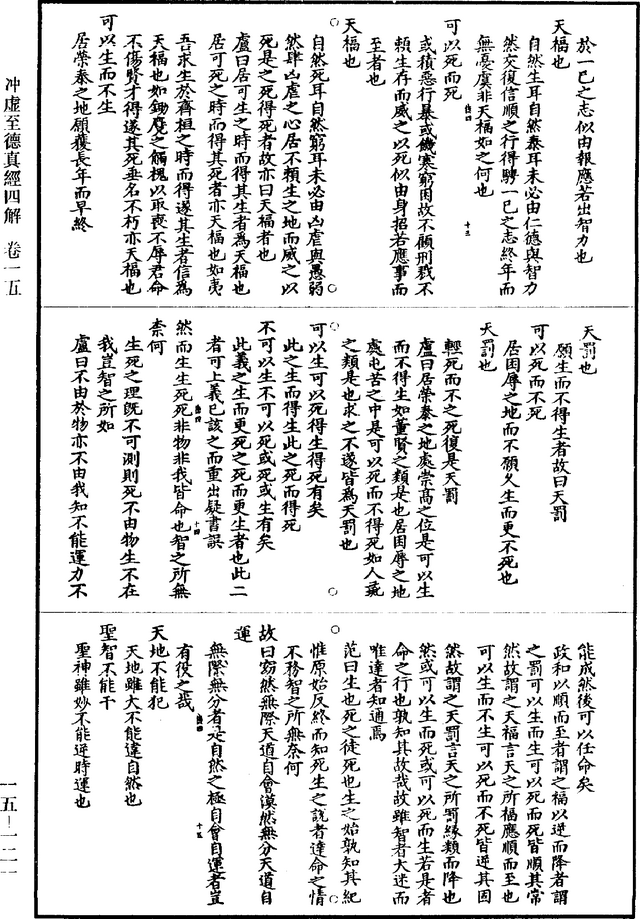 於一己之志似由報應若出智力也
天福也
自然生耳自然泰耳未必由仁德與智力
然交復信順之行得騁一己之志終年而
無憂虞非天福如之何也
可以死而死
或積惡行暴或飢寒窮困故不顧刑戮不
賴生存而威之以死似由身招若應事而
至者也
天福也
自然死耳自然窮耳未必由凶虐與愚弱
然肆凶虐之心居不賴生之地而威之以
死是之死得死者故亦曰天福者也
盧曰居可生之時而得其生者為天福也
居可死之時而得其死者亦天福也如夷
吾求生於齊桓之時而得遂其生者信為
天福也如鋤麑之觸槐以取喪不辱君命
不傷賢才得遂其死垂名不朽亦天福也
可以生而不生
居榮泰之地願獲長年而早終
天罰也
願生而不得生者故曰天罰
可以死而不死
居困辱之地而不願久生而更不死也
天罰也
輕死而不之死復是天罰
盧曰居榮泰之地處崇高之位是可以生
而不得生如董賢之類是也居困辱之地
處屯苦之中是可以死而不得死如人彘
之類是也求之不遂皆為天罰也
可以生可以死得生得死有矣
此之生而得生此之死而得死
不可以生不可以死或死或生有矣
此義之生而更死之死而更生者也此二
者可上義已該之而重出疑書誤
然而生生死死非物非我皆命也智之所無
柰何
生死之理既不可測則死不由物生不在
我豈智之所如
盧曰不由於物亦不由我知不能運力不
能成然後可以任命矣
政和以順而至者謂之福以逆而降者謂
之罰可以生而生可以死而死皆順其常
然故謂之天福言天之所福應順而至也
可以生而不生可以死而不死皆逆其固
然故謂之天罰言天之所罰緣類而降也
然或可以生而死或可以死而生若是者
命之行也孰知其故哉故雖智者大迷而
唯達者知通焉
范曰生也死之徒死也生之始孰知其紀
惟原始反終而知死生之說者達命之情
不務智之所無奈何
故曰窈然無際天道自會漠然無分天道自
運
無際無分者是自然之極自會自運者豈
有役之哉
天地不能犯
天地雖大不能違自然也
聖智不能干
聖神雖妙不能逆時運也
冲虛至德真經四解 卷一五
一五—一二一